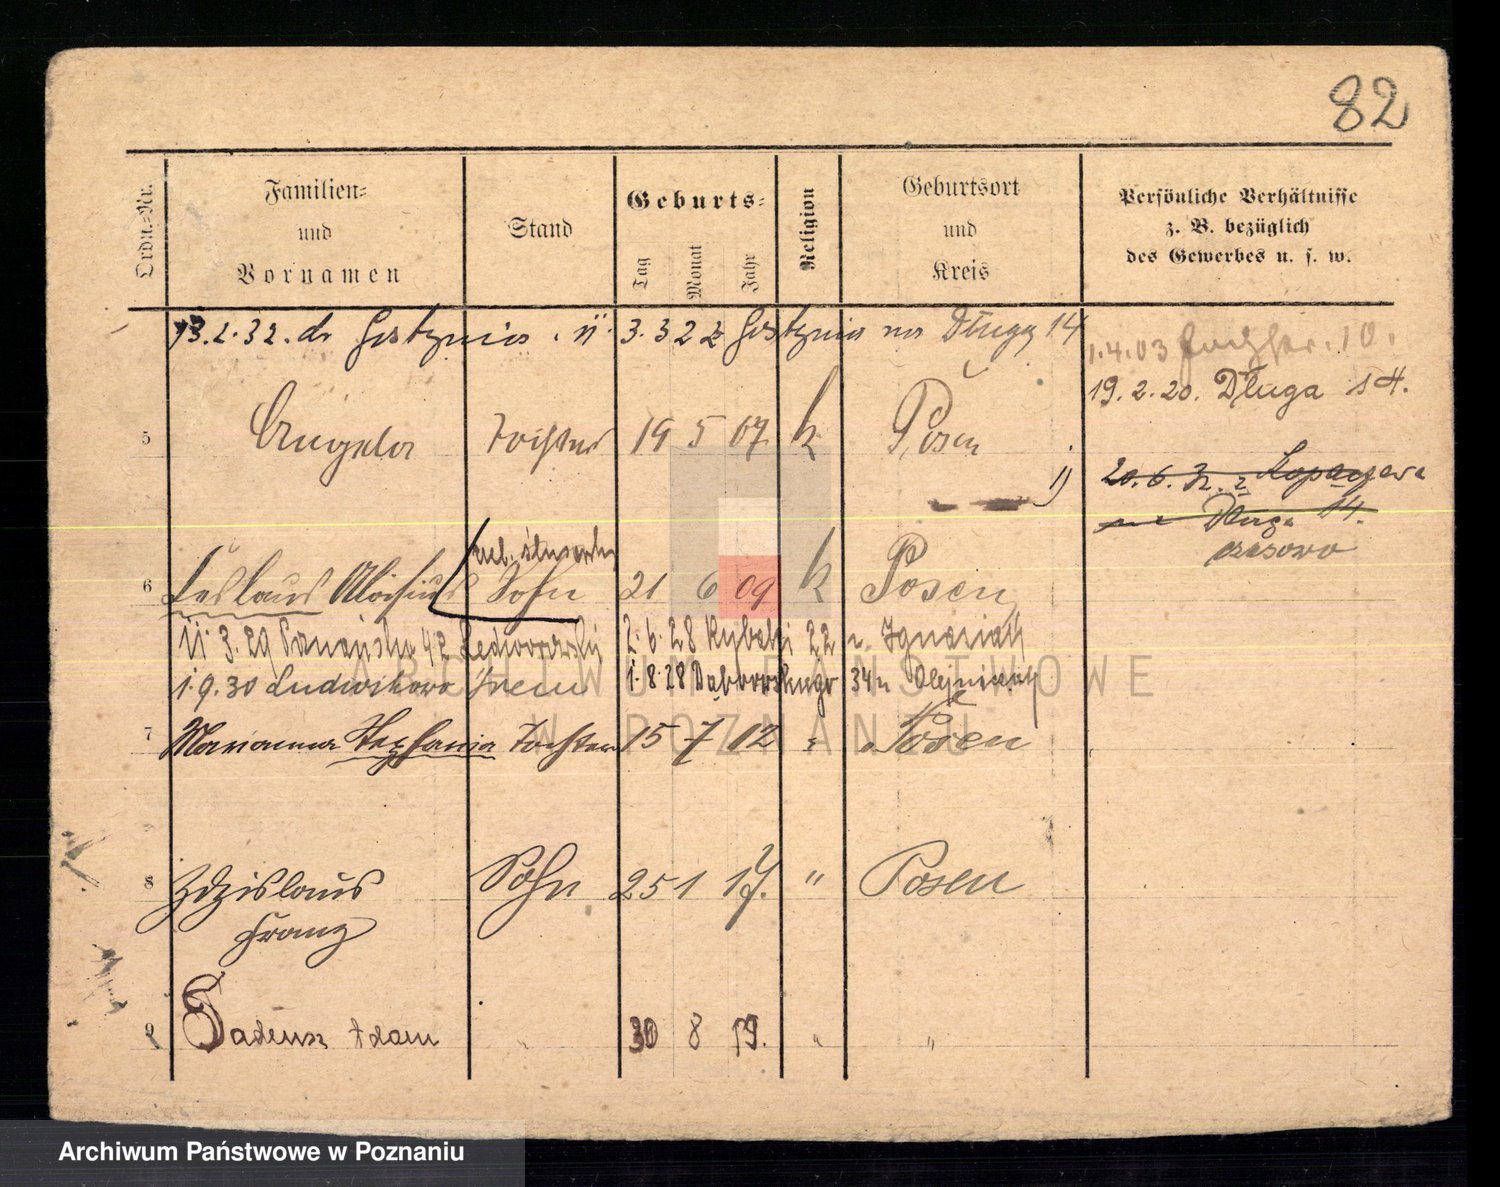 82
Ordn.=Nr.
Familien=
und
Vornamen
Stand
Geburts=
Tag
Monat
Jahr
Religion
Geburtsort
und
Kreis
Persönliche Verhältnisse
z. B. bezüglich
des Gewerbes u. s. w.
13.2.32. do Gostynia 11. 3. 32 z Gostynia na Długą 14
1.4.03 10.
19.2.20. Długa 14.
5 Angela Tochter 19 5 07 k Posen
1) 20.6.32. z
na Długa 14.
czasowo
6 Leslaus Aloisius Sohn 21 6 09 k Posen
11.3.29 42 2.6.28 Rybaki 22 u. Ignasiak
1.9.30 Ludwikowo Śrem 1.8.28 Dąbrowskiego 34 u Olejniczak
7 Marianna Stephania Tochter 15 7 12 " Posen
8 Zdzislaus Sohn 25 1 17. " Posen
Franz
9 Tadeusz Adam " 30 8 19. " "
ARCHIWUM PAŃSTWOWE
W POZNANIU
Archiwum Państwowe w Poznaniu